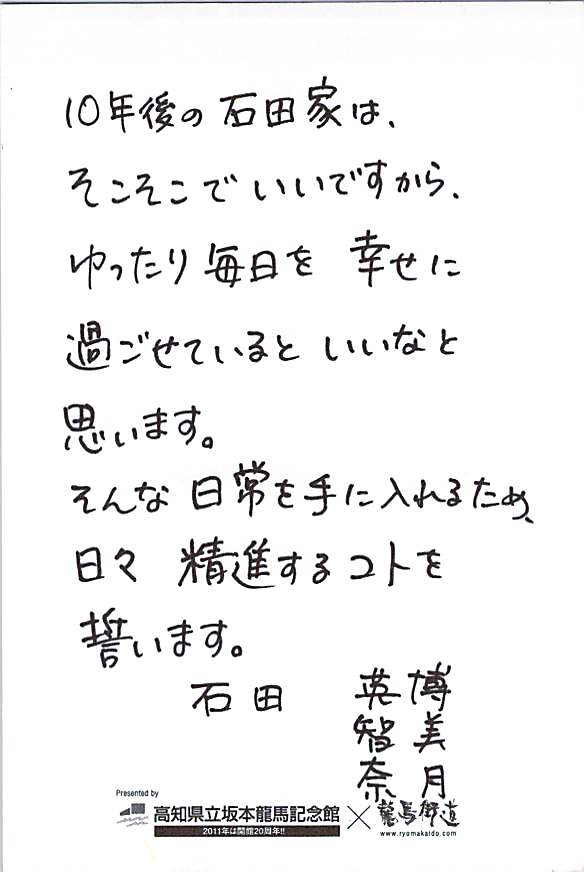 10年後の石田家は、
そこそこでいいですから、
ゆったり毎日を幸せに
過ごせているといいなと
思います。
そんな日常を手に入れるため、
日々精進するコトを
誓います。
石田 英博
智美
奈月
Presented by
高知県立坂本龍馬記念館×龍馬街道
2011年は開館20周年!!
www.ryomakaido.com